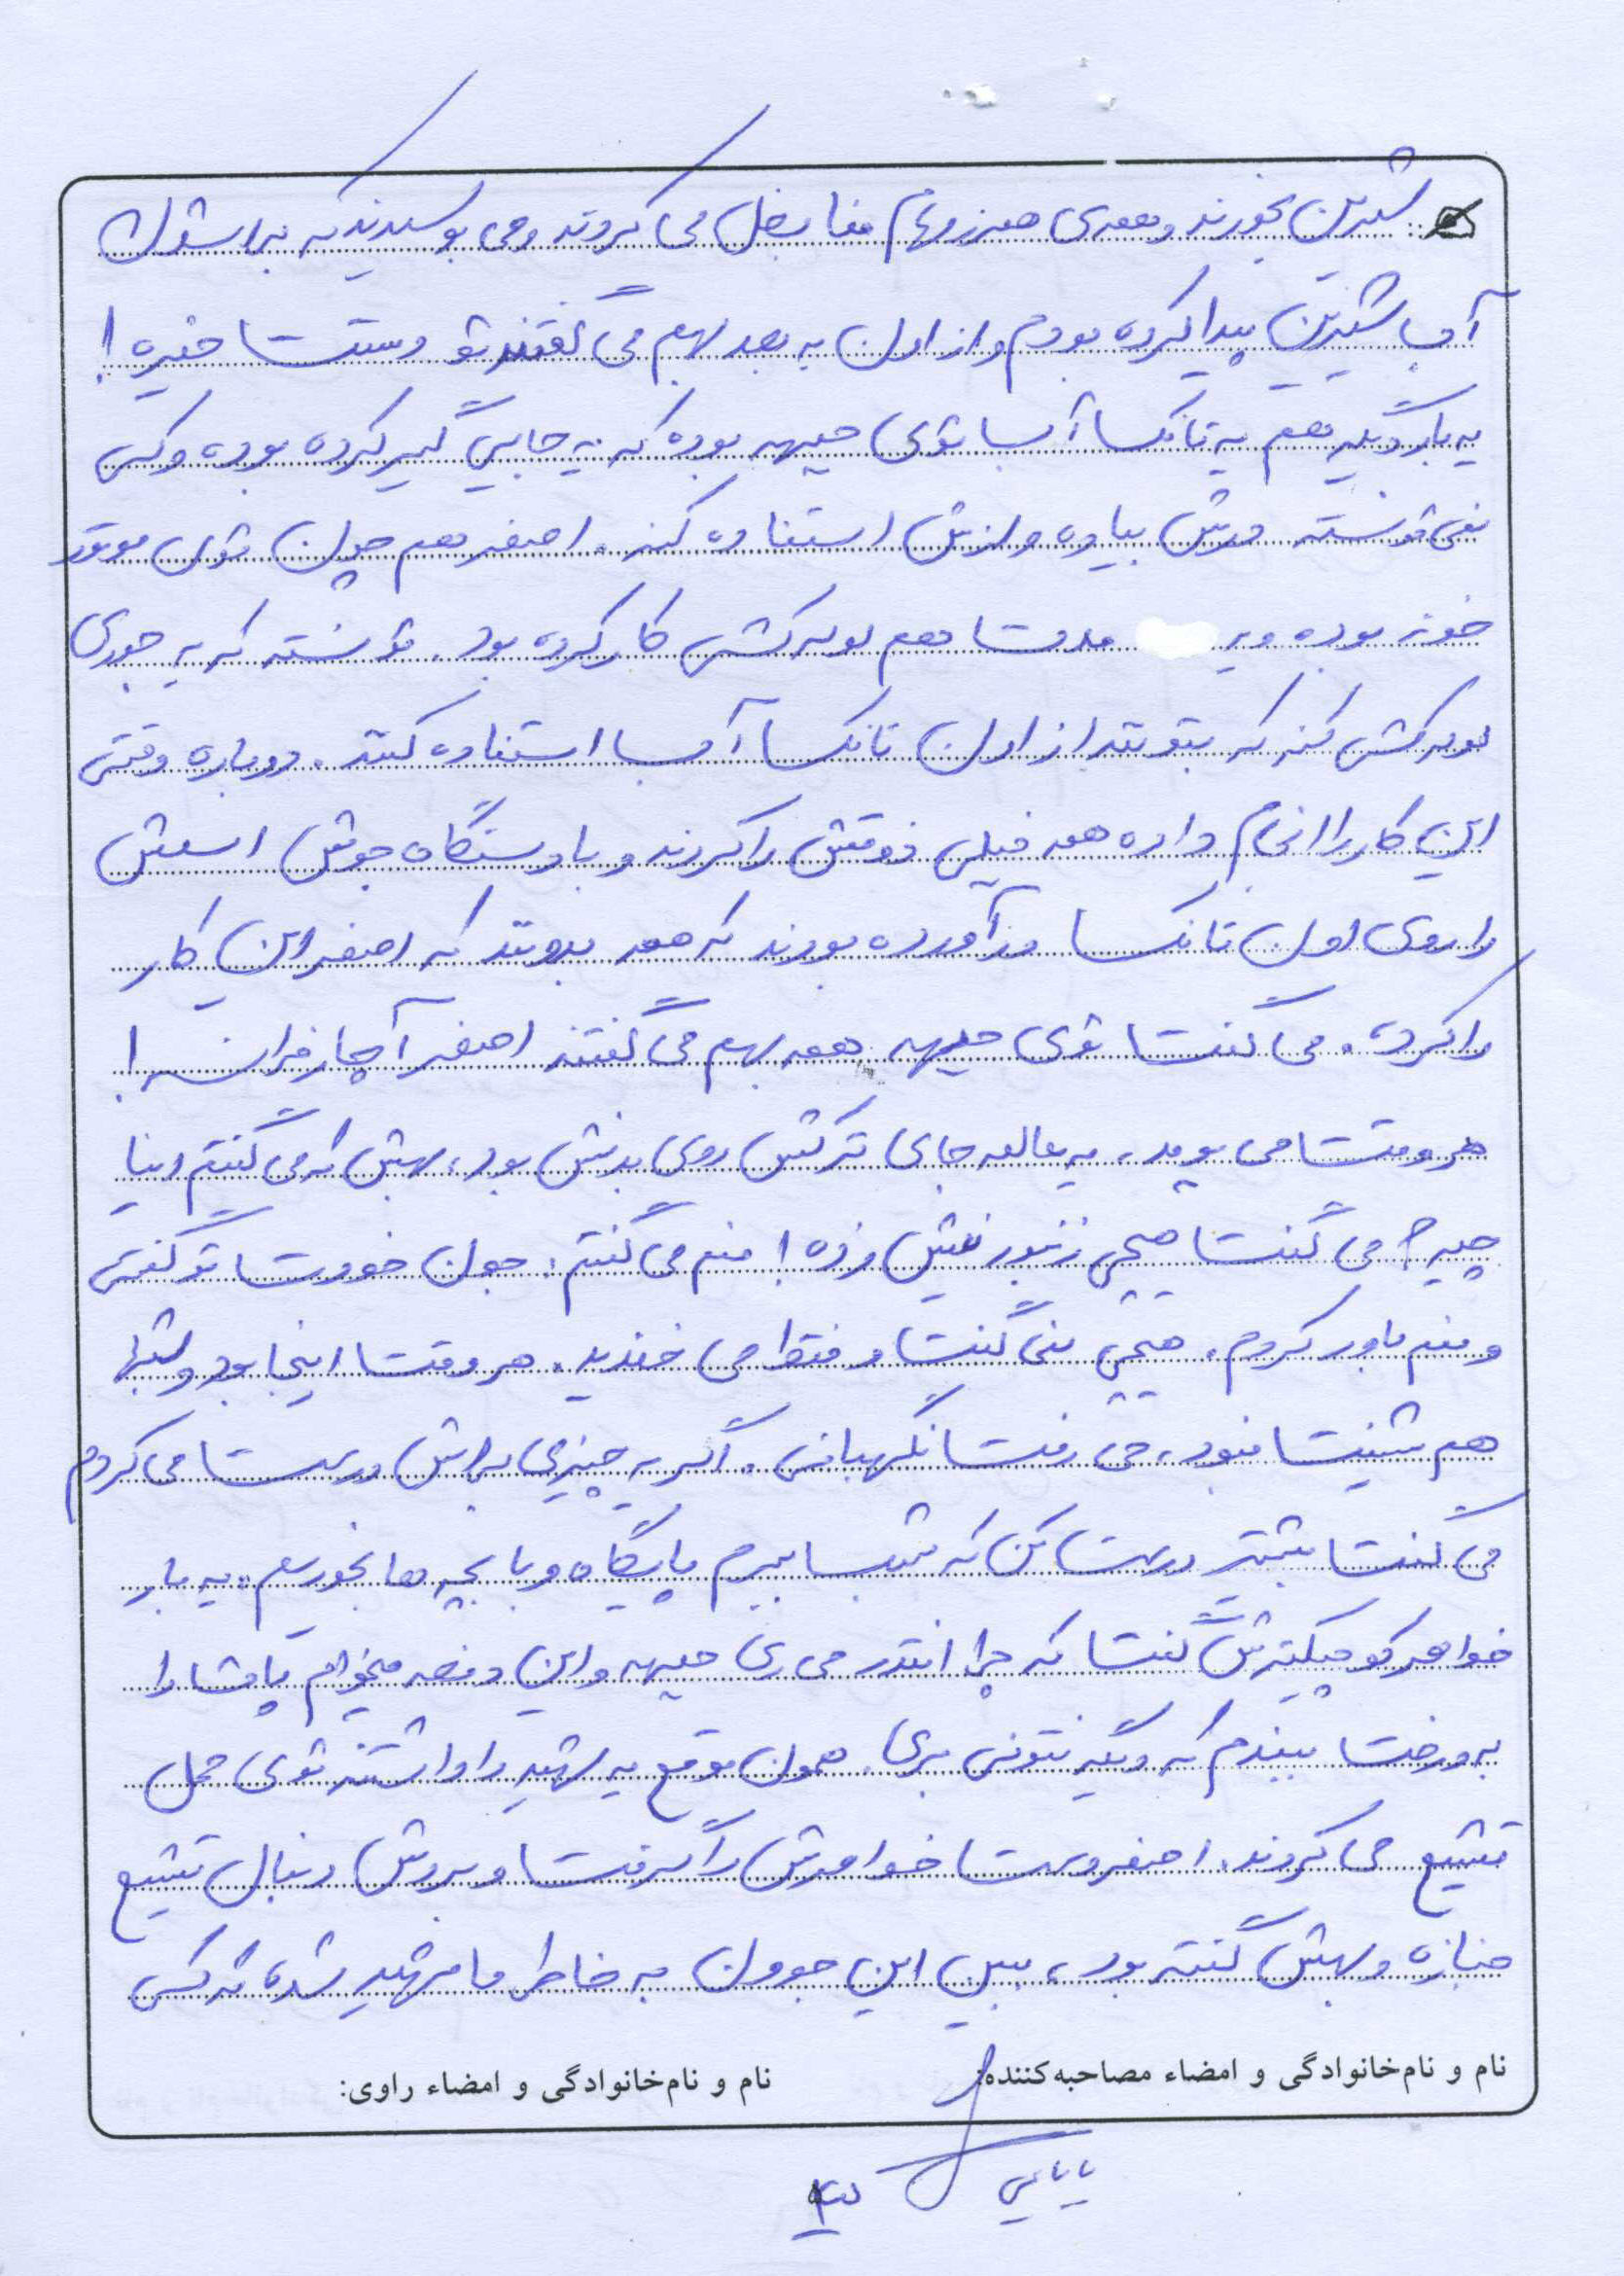 شیرین بخورند و همه‌ی هم‌رزمهام منا بغل می کردند و می بوسیدند که براشون
آب شیرین پیدا کرده بودم و از اون به بعد بهم می گفتند تو دستت خیره!
یه بار دیگه هم یه تانکر آب توی جبهه بوده که یه جایی گیر کرده بوده و کسی
نمی تونسته درش بیاره و ازش استفاده کنه. اصغر هم چون توی موتور
خونه بوده و یه مدت هم لوله کشی کار کرده بود. تونسته که یه جوری
لوله کشی کنه که بتونند از اون تانکر آب استفاده کنند. دوباره وقتی
این کار را انجام داده همه خیلی ذوقش را کردند و با دستگاه جوش اسمش
را روی اون تانکر درآورده بودند که همه بدونند که اصغر این کار
را کرده. می گفت توی جبهه همه بهم می گفتند اصغر آچار فرانسه!
هر وقت می یومد، یه عالمه جای ترکش روی بدنش بود، بهش که می گفتم اینا
چیه؟ می گفت هیچی زنبور نیش زده! منم می گفتم: جون خودت تو گفتی
و منم باور کردم. هیچی نمی گفت و فقط می خندید. هر وقت اینجا بود و شبها
هم شیفت نبود، می رفت نگهبانی. اگر یه چیزی براش درست می کردم
می گفت بیشتر درست کن که شب ببرم پایگاه و با بچه ها بخوریم. یه بار
خواهر کوچیکترش گفت که چرا انقدر می ری جبهه و این دفعه میخوام پات را
به درخت ببندم که دیگه نتونی بری. همون موقع یه شهید را داشتند توی محل
تشییع می کردند. اصغر دست خواهرش را گرفت و بردش دنبال تشییع
جنازه و بهش گفته بود، ببین این جوون به خاطر ما شهید شده که کسی
نام و نام‌خانوادگی و امضاء مصاحبه‌کننده:
نام و نام‌خانوادگی و امضاء راوی:
بابایی